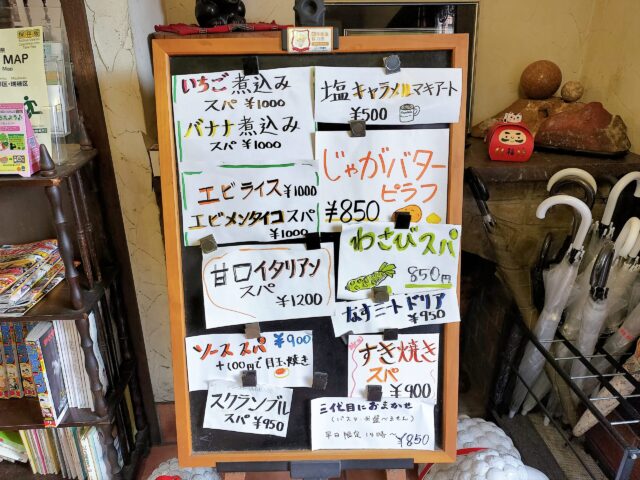 いちご煮込み
スパ ¥1000
バナナ煮込み
スパ ¥1000
塩キャラメルマキアート
¥500
エビライス ¥1000
エビメンタイコスパ
¥1000
じゃがバター
ピラフ
¥850
甘口イタリアン
スパ
¥1200
わさびスパ
850円
なすミートドリア
¥950
ソーススパ ¥900
+100円で目玉焼き
すき焼き
スパ
¥900
スクランブル
スパ ¥950
三代目におまかせ
平日限定 ¥850
MAP